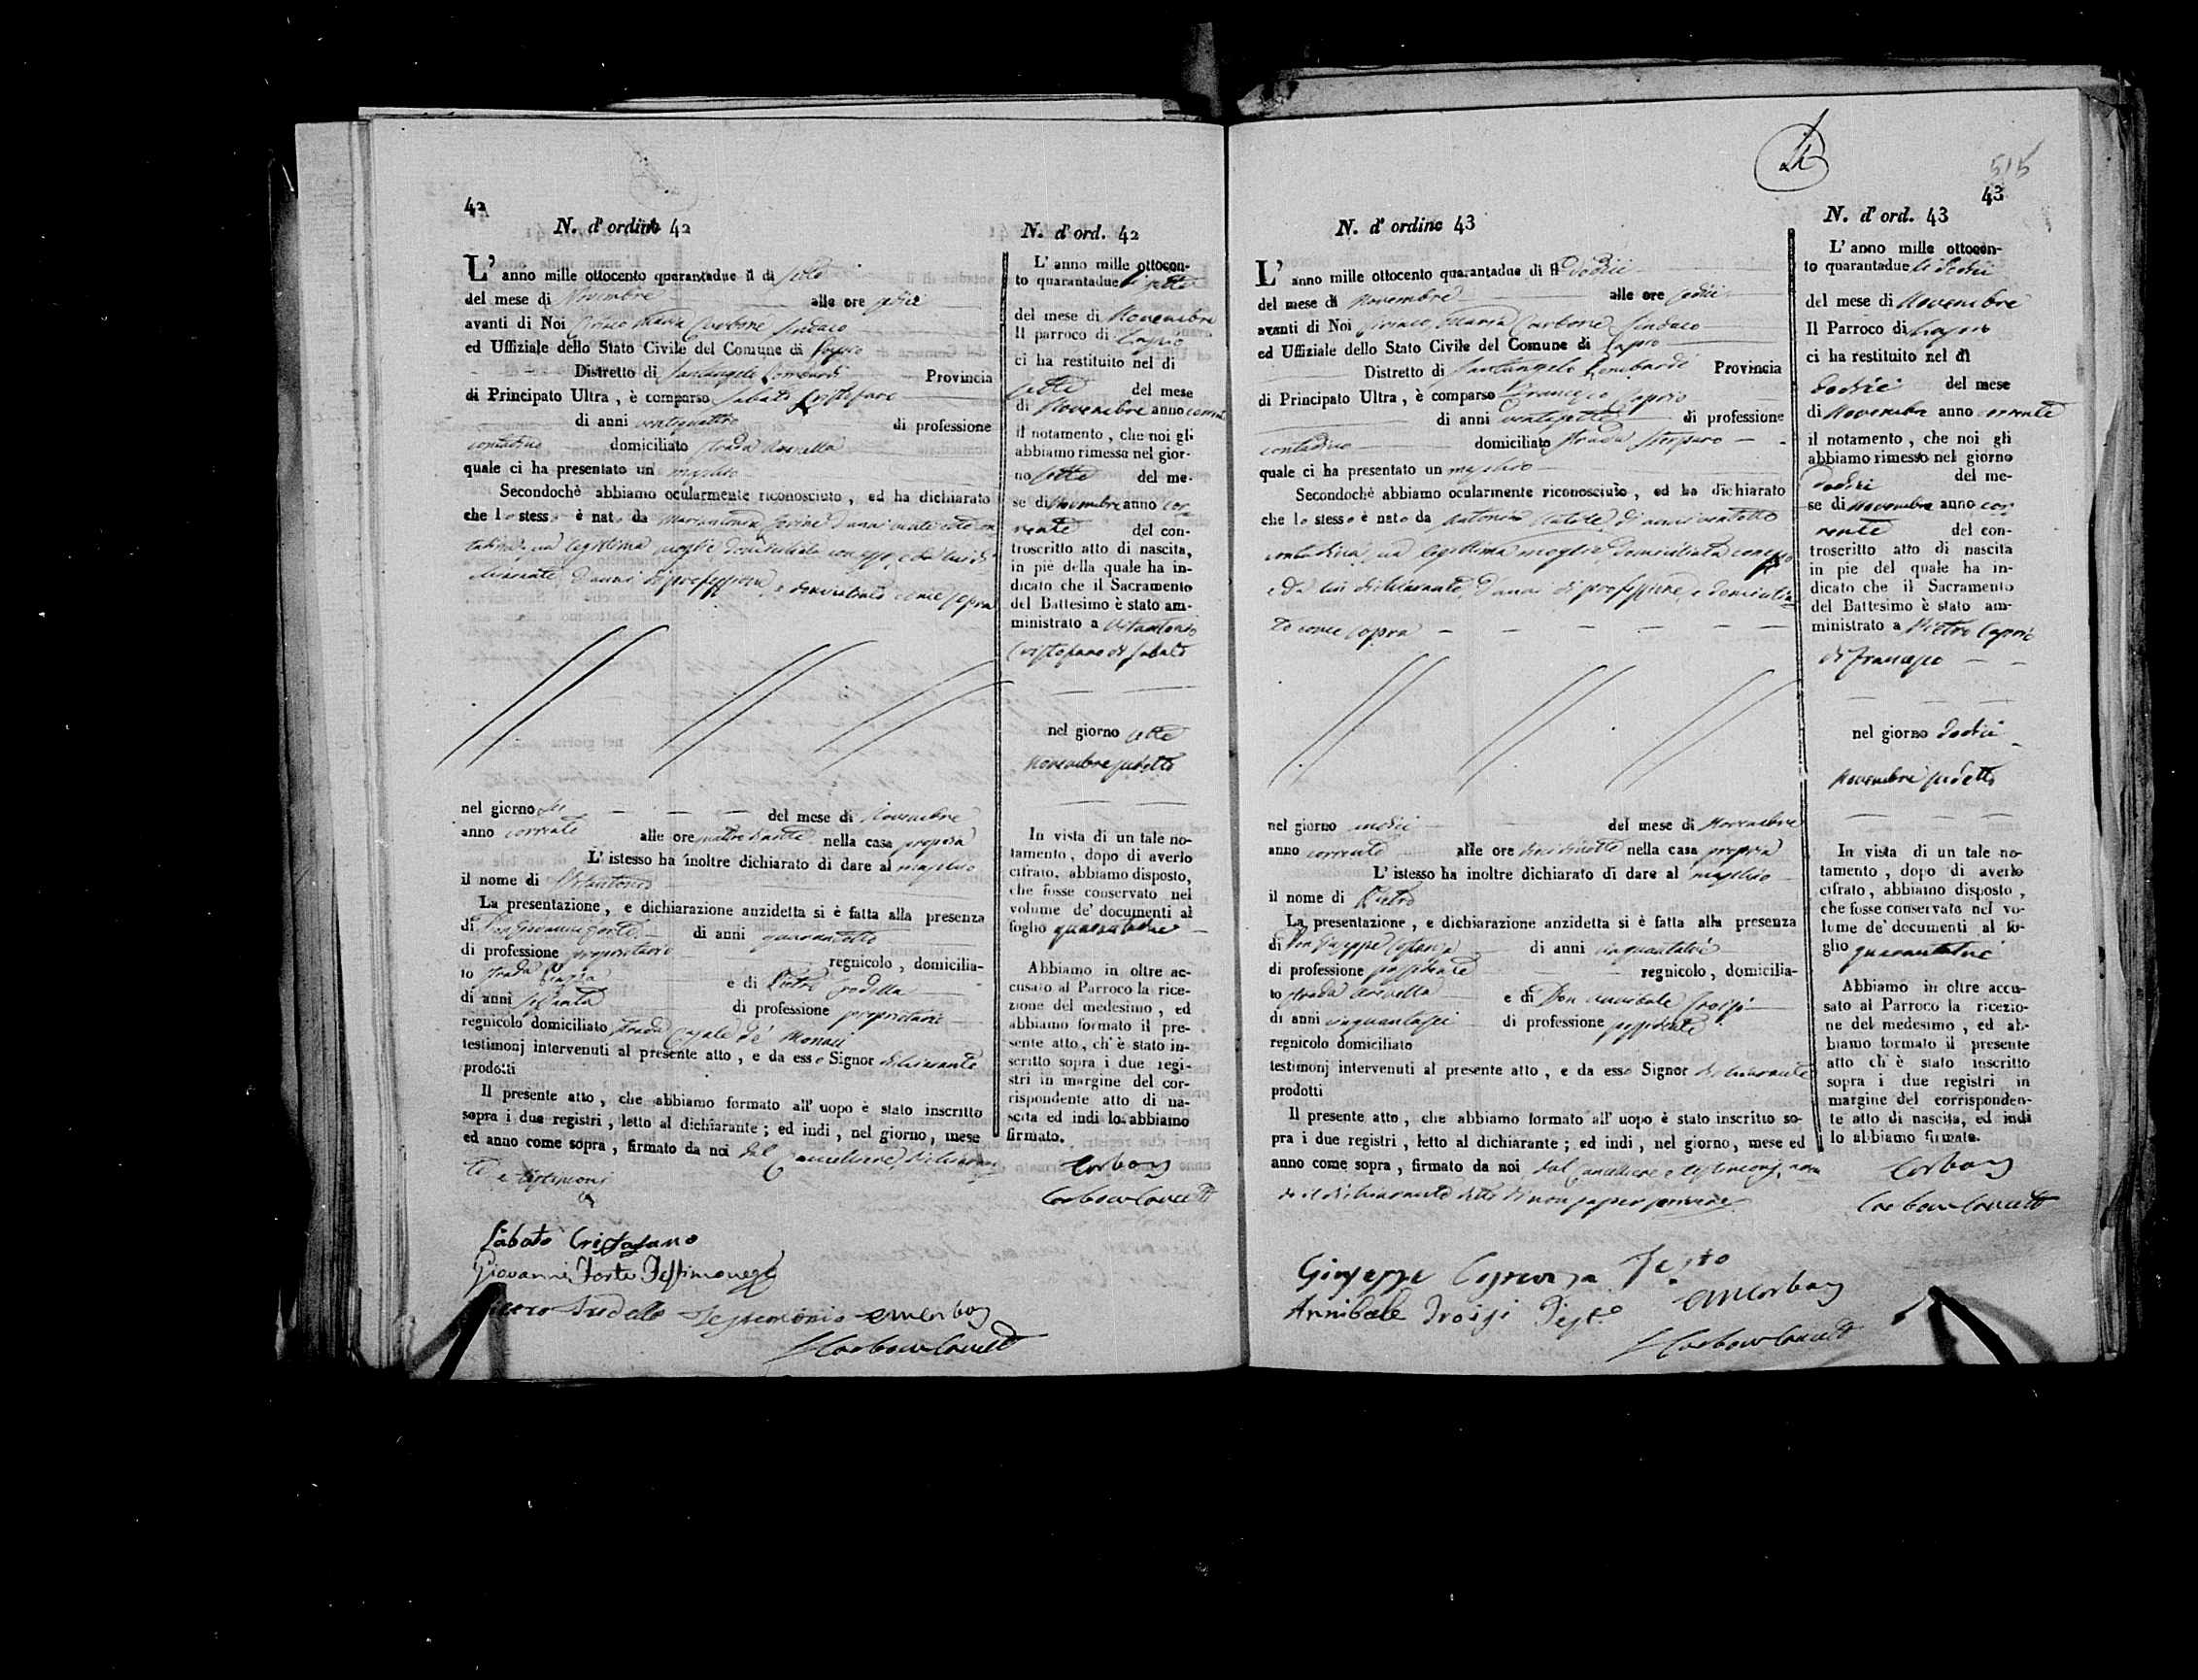 42
N. d'ordine 42
L' anno mille ottocento quarantadue il di sette
del mese di Novembre alle ore sedici
avanti di Noi Maria Carbone Sindaco
ed Uffiziale dello Stato Civile del Comune di
Distretto di Santangelo Lombardi Provincia
di Principato Ultra , è comparso Sabato Cristofano
di anni ventiquattro di professione
contadino domiciliato strada
quale ci ha presentato un maschio
Secondochè abbiamo ocularmente riconosciuto , ed ha dichiarato
che lo stesso è nato da Mariantonia d'anni con
tadina sua legittima moglie domiciliata con esso, e da lui di
chiarante, d'anni di professione, e domiciliato come sopra
nel giorno sei del mese di Novembre
anno corrente alle ore nella casa propria
L' istesso ha inoltre dichiarato di dare al maschio
il nome di Vitantonio
La presentazione, e dichiarazione anzidetta si è fatta alla presenza
di Don Giovanni Forte di anni quarantotto
di professione proprietario regnicolo , domicilia-
to strada Piazza e di Pietro
di anni settanta di professione proprietario
regnicolo domiciliato strada Casale de' Monaci
testimonj intervenuti al presente atto , e da esso Signor dichiarante
prodotti
Il presente atto , che abbiamo formato all' uopo è stato inscritto
sopra i due registri , letto al dichiarante ; ed indi , nel giorno, mese
ed anno come sopra , firmato da noi dal Cancelliere, dichiaran
te e testimonj
Sabato Cristofano
Giovanni Forte Testimone
Testimonio
N. d' ord. 42
L' anno mille ottocen-
to quarantadue li sette
del mese di Novembre
Il parroco di
ci ha restituito nel di
sette del mese
di Novembre anno corrente
il notamento , che noi gli
abbiamo rimesso nel gior-
no sette del me-
se di Novembre anno cor
rente del con-
troscritto atto di nascita,
in piè della quale ha in-
dicato che il Sacramento
del Battesimo è stato am-
ministrato a Vitantonio
Cristofano di Sabato
nel giorno sette
Novembre sudetto
In vista di un tale no-
tamento , dopo di averlo
cifrato, abbiamo disposto,
che fosse conservato nel
volume de' documenti al
foglio quarantadue
Abbiamo in oltre ac-
cusato al Parroco la rice-
zione del medesimo , ed
abbiamo formato il pre-
sente atto, ch' è stato in-
scritto sopra i due regi-
stri in margine del cor-
rispondente atto di na-
scita ed indi lo abbiamo
firmato.
515
43
N. d' ordine 43
L' anno mille ottocento quarantadue di il dodici
del mese di Novembre alle ore sedici
avanti di Noi Maria Carbone Sindaco
ed Uffiziale dello Stato Civile del Comune di
Distretto di Santangelo Lombardi Provincia
di Principato Ultra , è comparso Francesco Caprio
di anni ventisette di professione
contadino domiciliato strada
quale ci ha presentato un maschio
Secondochè abbiamo ocularmente riconosciuto , ed ha dichiarato
che lo stesso è nato da di anni ventotto
contadina sua legittima moglie domiciliata con esso
e da lui dichiarante, d'anni di professione, e domicilia
to come sopra
nel giorno undici del mese di Novembre
anno corrente alle ore nella casa propria
L' istesso ha inoltre dichiarato di dare al maschio
il nome di Pietro
La presentazione, e dichiarazione anzidetta si è fatta alla presenza
di Don Giuseppe di anni cinquantatrè
di professione possidente regnicolo , domicilia-
to strada e di Don Annibale Troisi
di anni cinquantasei di professione possidente
regnicolo domiciliato
testimonj intervenuti al presente atto , e da esso Signor dichiarante
prodotti
Il presente atto , che abbiamo formato all' uopo è stato inscritto so-
pra i due registri , letto al dichiarante ; ed indi , nel giorno, mese ed
anno come sopra , firmato da noi dal Cancelliere e testimonj, aven
do il dichiarante detto di non saper scrivere
Giuseppe
Annibale Troisi
N. d' ord. 43
L' anno mille ottocen-
to quarantadue li dodici
del mese di Novembre
Il Parroco di
ci ha restituito nel di
dodici del mese
di Novembre anno corrente
il notamento , che noi gli
abbiamo rimesso nel giorno
dodici del me-
se di Novembre anno cor
rente del con-
troscritto atto di nascita
in pie del quale ha in-
dicato che il Sacramento
del Battesimo è stato am-
ministrato a Pietro Caprio
di Francesco
nel giorno dodici
Novembre sudetto
In vista di un tale no-
tamento , dopo di averlo
cifrato , abbiamo disposto ,
che fosse conservato nel vo-
lume de' documenti al fo-
glio quarantatrè
Abbiamo in oltre accu-
sato al Parroco la ricezio-
ne del medesimo , ed ab-
biamo formato il presente
atto ch' è stato inscritto
sopra i due registri in
margine del corrisponden-
te atto di nascita, ed indi
lo abbiamo firmato.